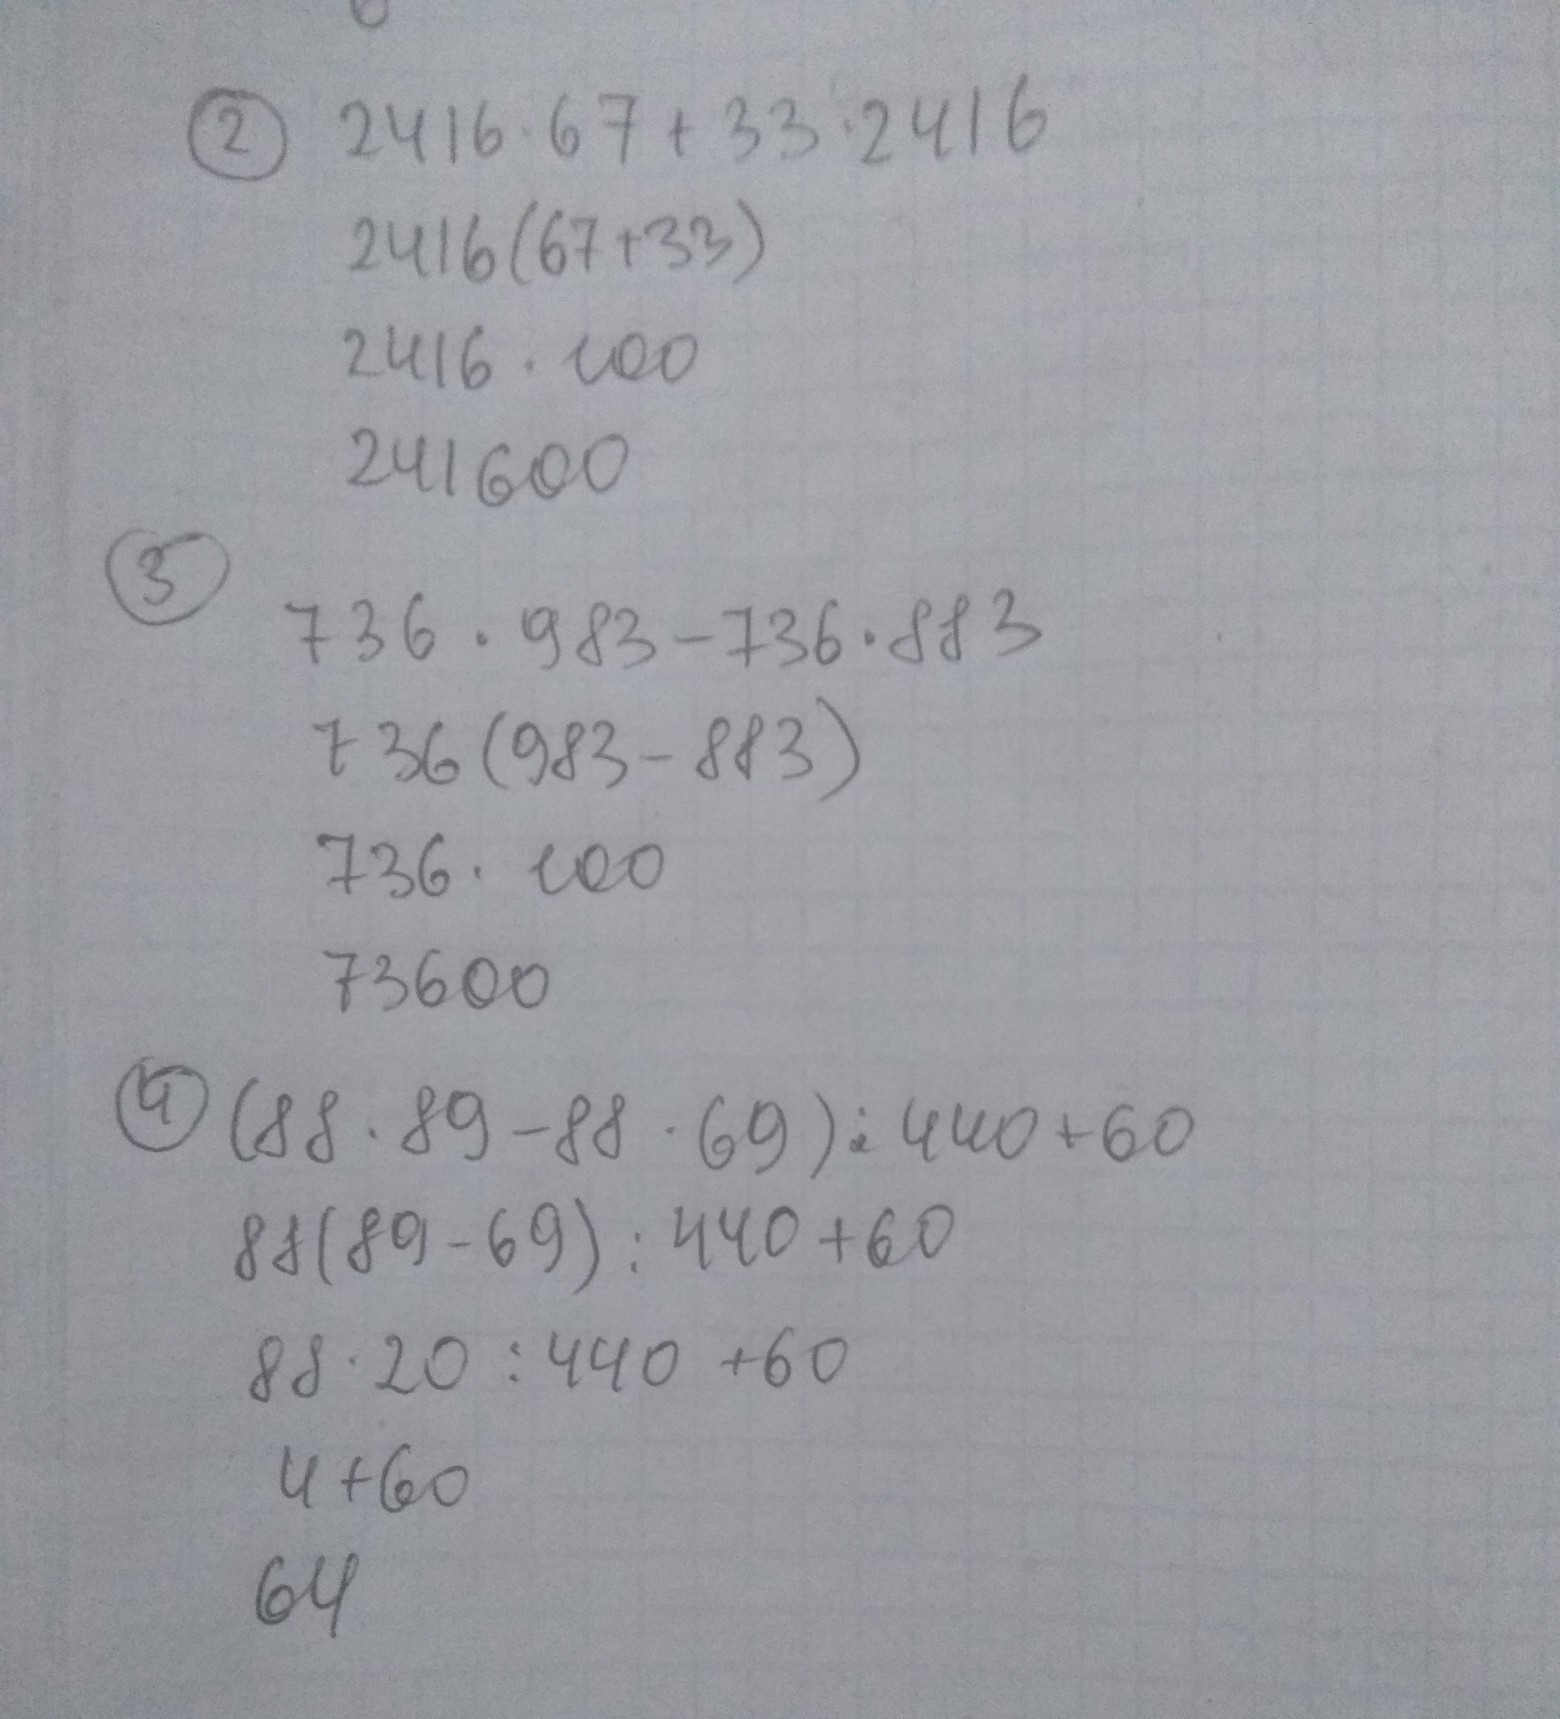 2 2416·67+33·2416
2416(67+33)
2416·100
241600
3
736·983-736·883
736(983-883)
736·100
73600
4 (88·89-88·69):440+60
88(89-69):440+60
88·20:440+60
4+60
64